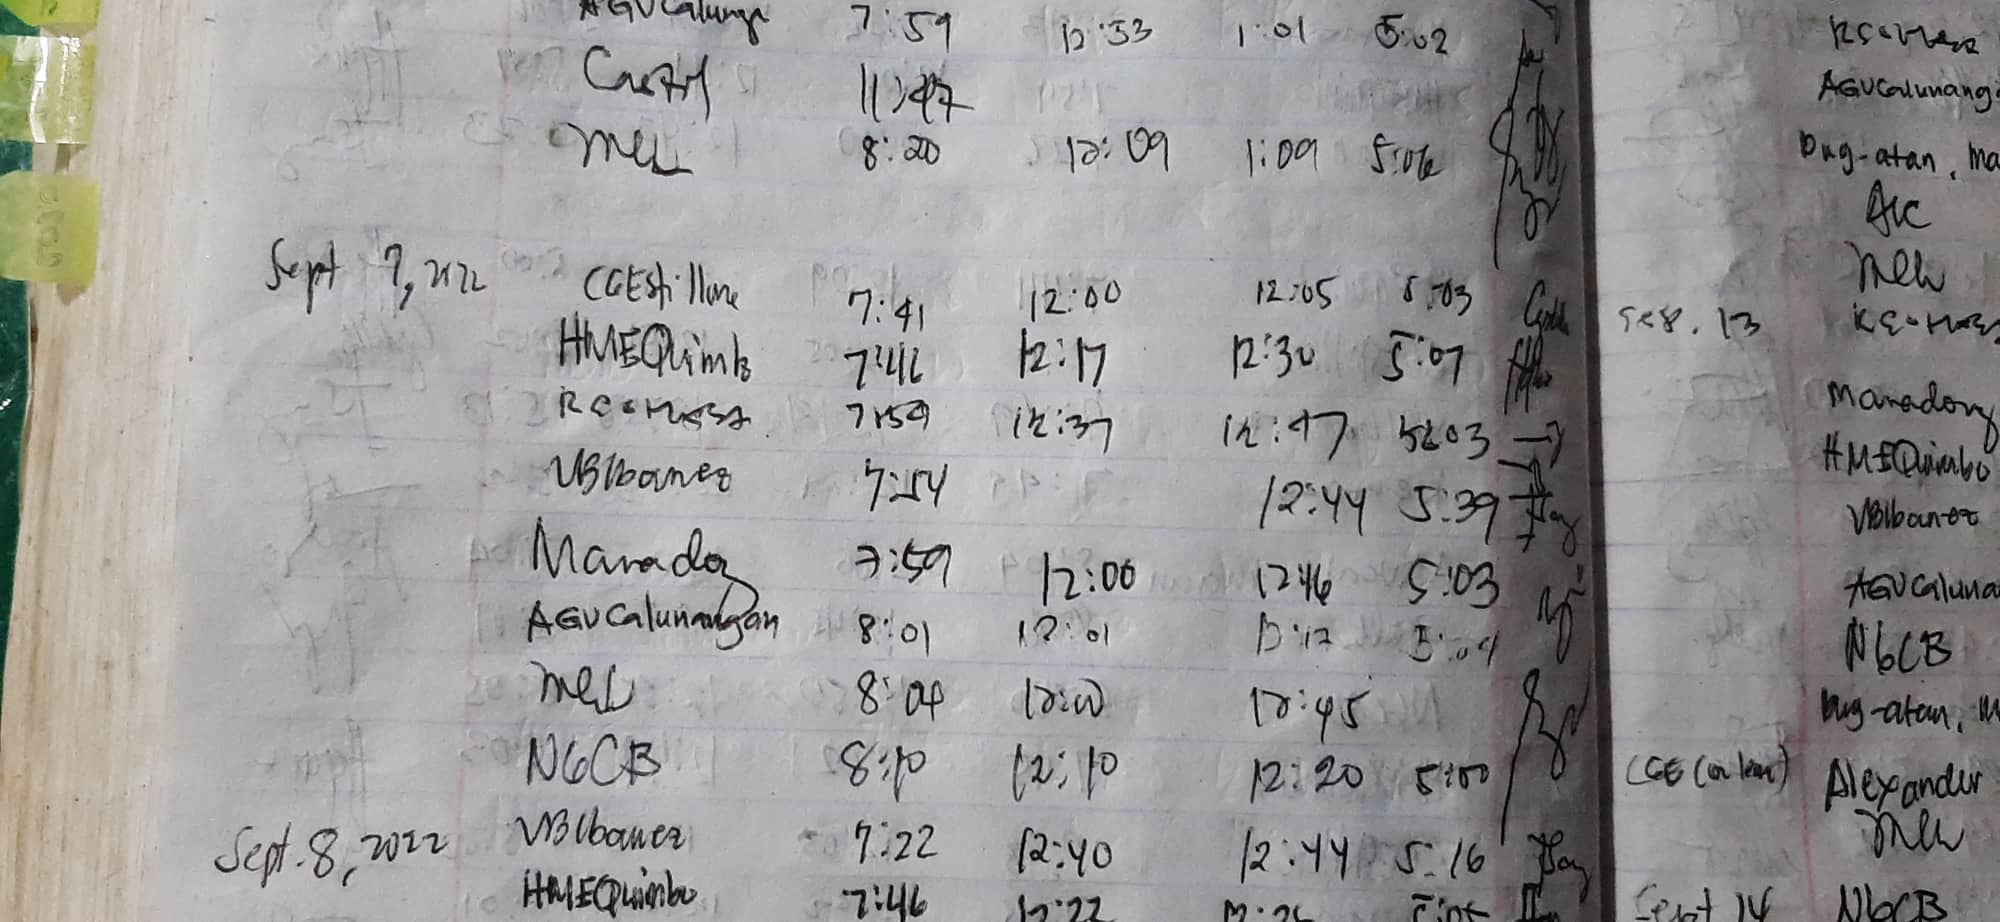 AGUCalunga 7:59 12:53 1:01 5:02
11:47
Mel 8:20 12:09 1:09 5:06
Sept 7, 2022 CGEstillore 7:41 12:00 12:05 5:03
HMEQuimbo 7:46 12:17 12:30 5:07
7:59 12:37 12:47 5:03
VBIbanez 7:54 12:44 5:39
Maradog 7:59 12:00 12:46 5:03
AGUCalunangan 8:01 12:01 12:12 5:04
Mel 8:04 12:00 12:45
NGCB 8:10 12:10 12:20 5:00
Sept. 8, 2022 VBIbanez 7:22 12:40 12:44 5:16
HMEQuimbo 7:46 12:22
AGUCalunang
Dug-atan, Ma
Mel
13
Maradong
HMEQuimbo
VBIbanez
AGUCaluna
NGCB
Dug-atan, M
CGE Alexander
Mel
Sept 14 NGCB